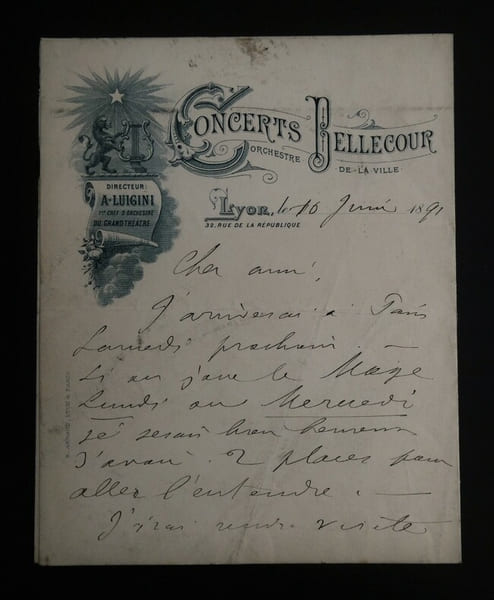 CONCERTS BELLECOUR
ORCHESTRE DE LA VILLE
DIRECTEUR:
A. LUIGINI
1ER CHEF D'ORCHESTRE
DU GRAND THEATRE
Lyon, le 16 Juin 1891
32, RUE DE LA RÉPUBLIQUE
Cher ami,
J'arriverai à Paris
Samedi prochain. —
Si on joue le Mage
Lundi ou Mercredi
je serais bien heureux
d'avoir 2 places pour
aller l'entendre. —
J'irai rendre visite